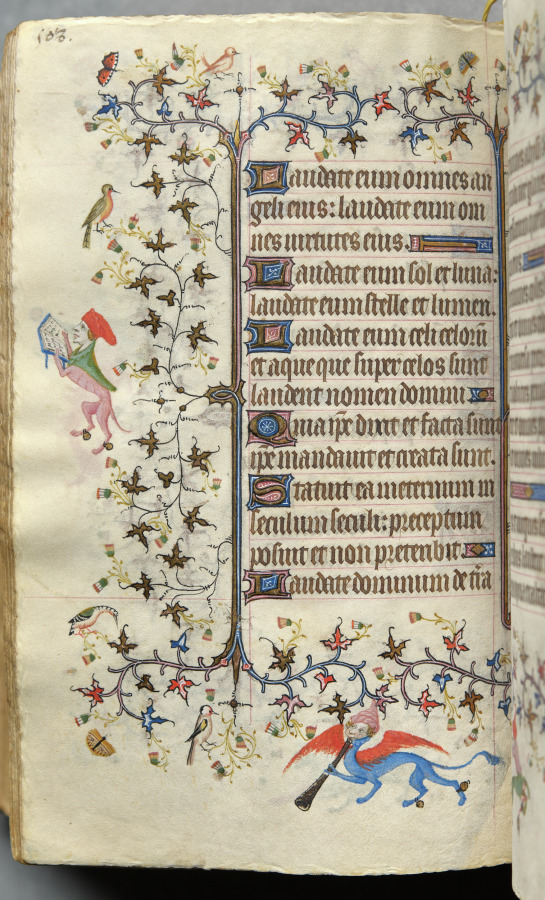 103.
Laudate eum omnes an
geli eius: laudate eum om
nes uirtutes eius.
Laudate eum sol et luna:
laudate eum stelle et lumen.
Laudate eum celi celorū
et aque que super celos sunt
laudent nomen domini
Quia ip̄e dixit et facta sunt
ip̄e mandauit et creata sunt.
Statuit ea ineternum in
seculum seculi: preceptum
posuit et non preteribit
Laudate dominum de t̄ra